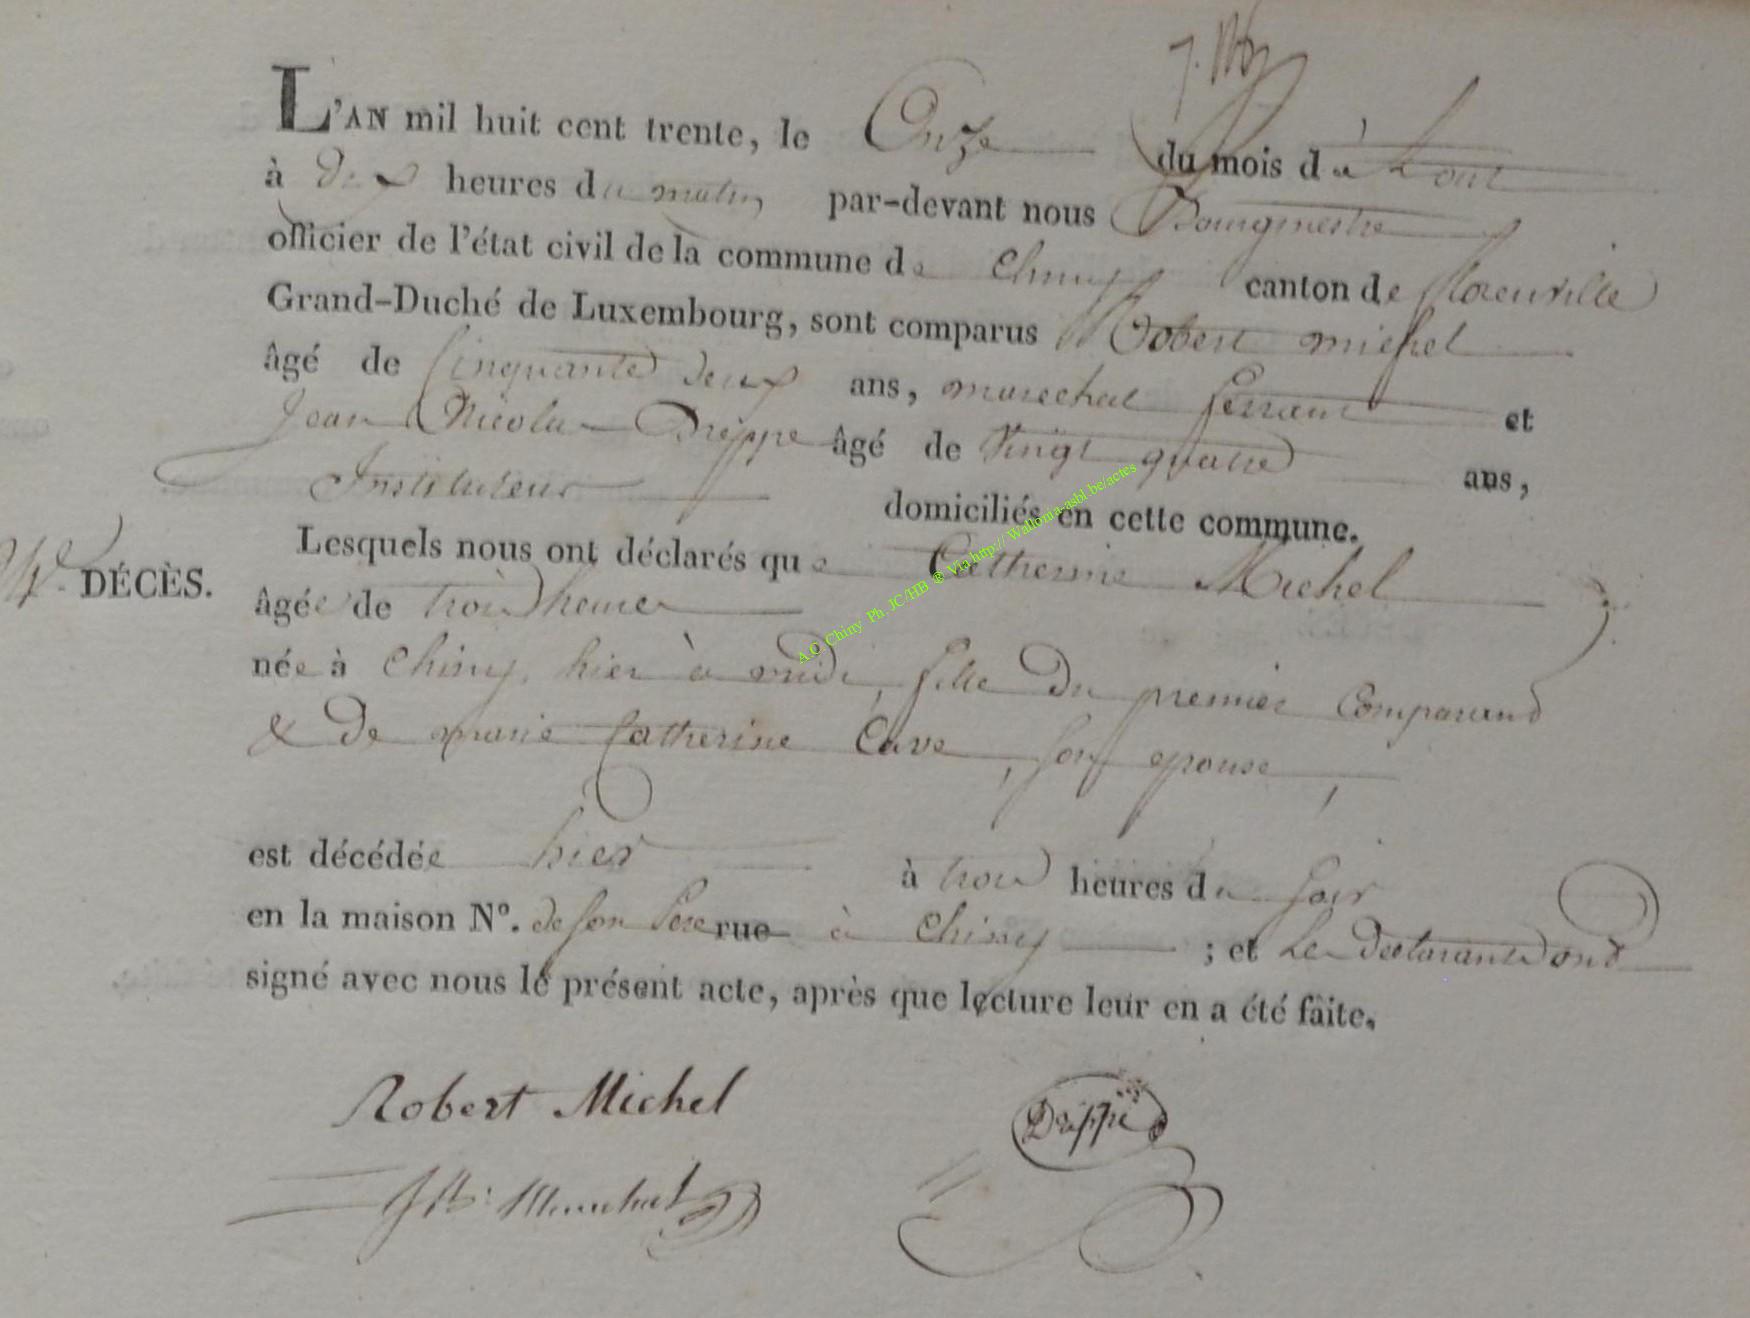 L'AN mil huit cent trente, le Onze du mois d'Aout
à deux heures du matin par-devant nous Bourgmestre
officier de l'état civil de la commune de Chiny canton de florenville
Grand-Duché de Luxembourg, sont comparus Robert michel
âgé de Cinquante deux ans, marechal ferrant et
Jean Nicolas Drippe âgé de Vingt quatre ans,
Instituteur domiciliés en cette commune.
Lesquels nous ont déclarés que Catherine Michel
DÉCÈS.
âgée de trois heures
née à Chiny, hier à midi, fille du premier Comparand
& de marie Catherine Cave, son epouse,
est décédée hier à trois heures du soir
en la maison N°. de son Pere rue à Chiny ; et les declarants ont
signé avec nous le présent acte, après que lecture leur en a été faite.
Robert Michel Drippe
A.C. Chiny Ph. JC/HB ® Via http://Wallonia-asbl.be/actes